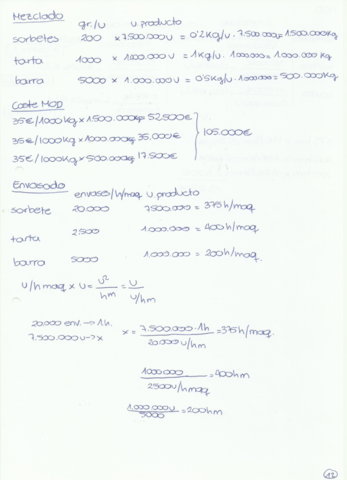 Mezclado
gr./u u producto
sorbetes 200 x 7.500.000u = 0'2kg/u · 7.500.000u = 1500.000kg
tarta 1000 x 1.000.000u = 1kg/u · 1.000.000 = 1.000.000 kg
barra 5000 x 1.000.000u = 0'5kg/u · 1.000.000 = 500.000kg
Coste MOD
35€/1000kg x 1500.000kg = 52500€
35€/1000kg x 1000.000kg = 35.000€ 105.000€
35€/1000kg x 500.000kg = 17.500€
Envasado
envases/h/maq u. producto
sorbete 20.000 7500.000 = 375h/maq
tarta 2500 1.000.000 = 400h/maq
barra 5000 1.000.000 = 200h/maq.
u/hmaq x u = u²/hm = u/u/hm
20.000 env. → 1h. x = 7.500.000·1h/20.000 u/hm = 375h/maq
7.500.000u → x
1000000/2500u/hmaq = 400hm
1.000.000u/5000 = 200hm
12